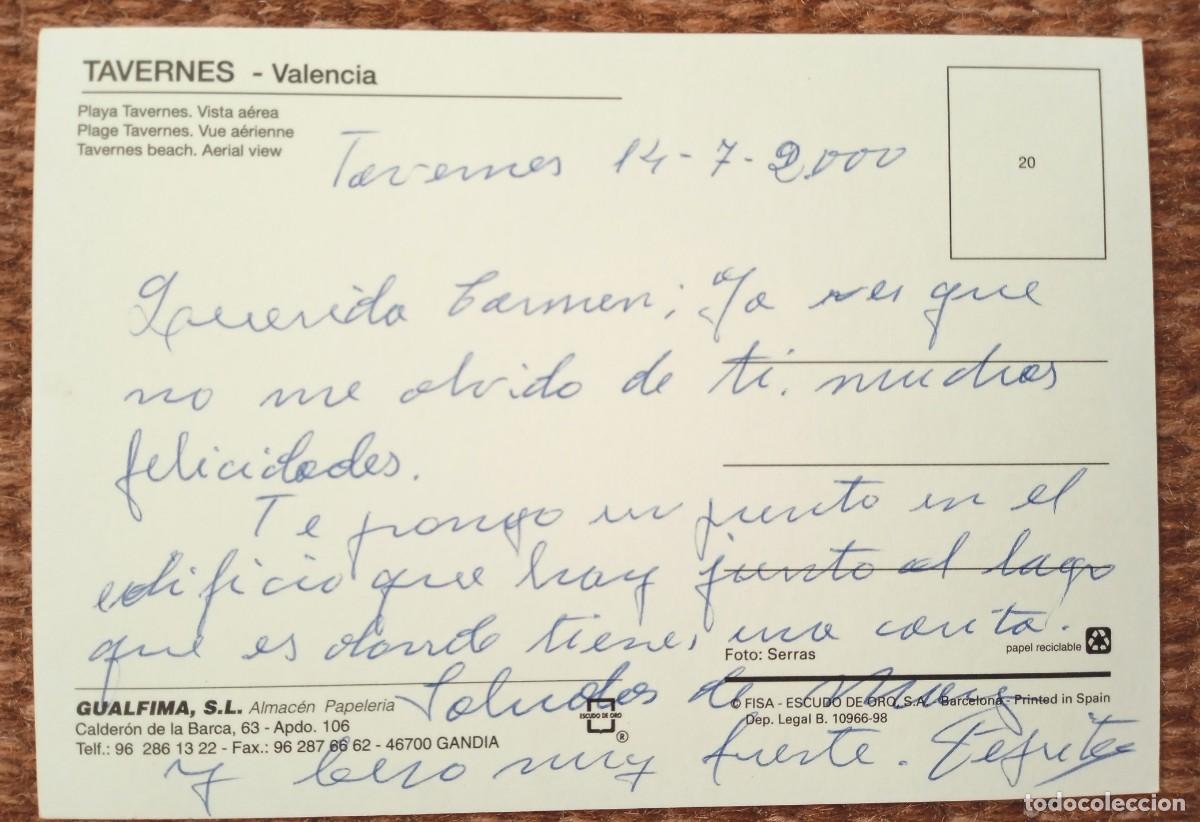 TAVERNES - Valencia
Playa Tavernes. Vista aérea
Plage Tavernes. Vue aérienne
Tavernes beach. Aerial view
20
Tavernes 14-7-2000
Querida Carmen; Ya ves que
no me olvido de ti. muchas
felicidades.
Te pongo un punto en el
edificio que hay junto al lago
que es donde tienes una casita.
Foto: Serras
papel reciclable
Saludos de
GUALFIMA, S.L. Almacén Papeleria
Calderón de la Barca, 63 - Apdo. 106
Telf.: 96 286 13 22 - Fax.: 96 287 66 62 - 46700 GANDIA
ESCUDO DE ORO
®
© FISA - ESCUDO DE ORO, S.A. - Barcelona - Printed in Spain
Dep. Legal B. 10966-98
y beso muy fuerte. Pepita
todocoleccion